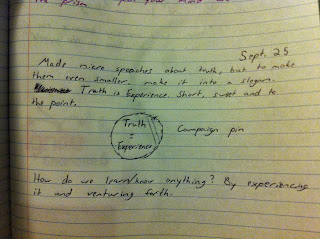 the prism
Sept. 25
Made micro speeches about truth, but to make
them even smaller. make it into a slogan.
Truth is Experience. Short, sweet and to
the point.
Truth
=
Experience
Campaign pin
How do we learn/know anything? By experiencing
it and venturing forth.